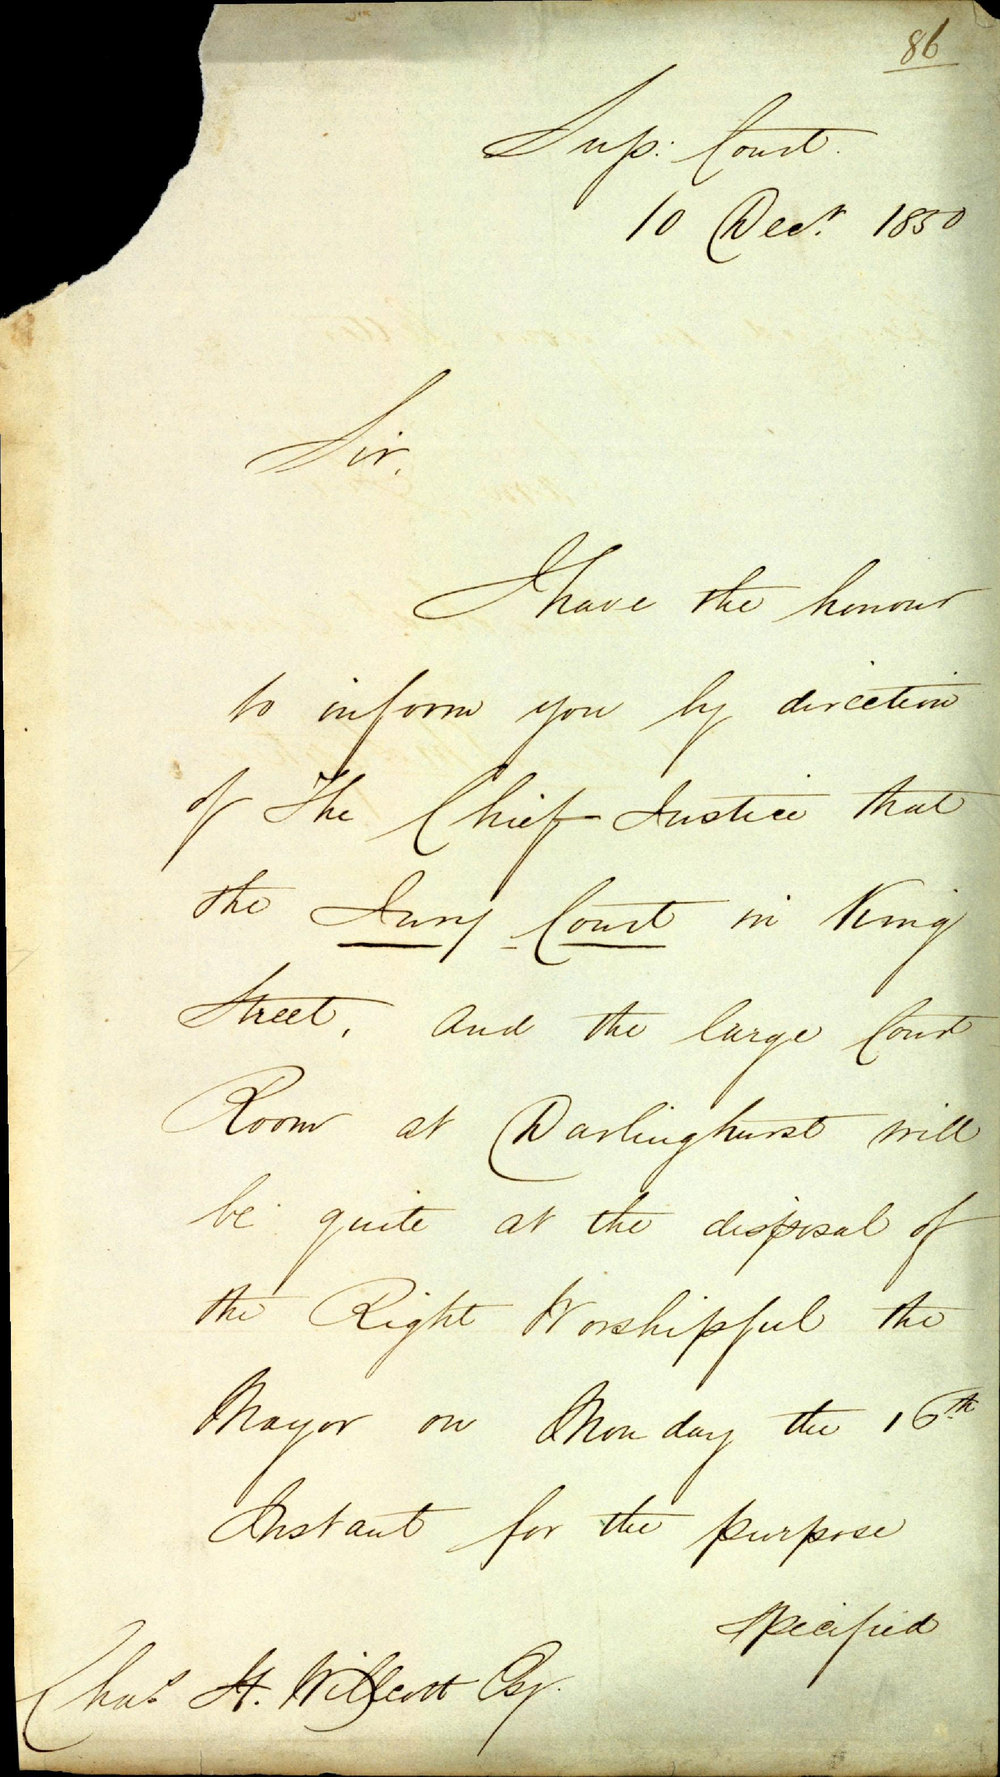 86
Sup: Court.
10 Decr. 1850
Sir,
I have the honour
to inform you by direction
of The Chief Justice that
the Jury Court in King
Street, and the large Court
Room at Darlinghurst will
be quite at the disposal of
the Right Worshipful the
Mayor on Monday the 16th
Instant for the purpose
specified
Chas. H. Willcott Esq.